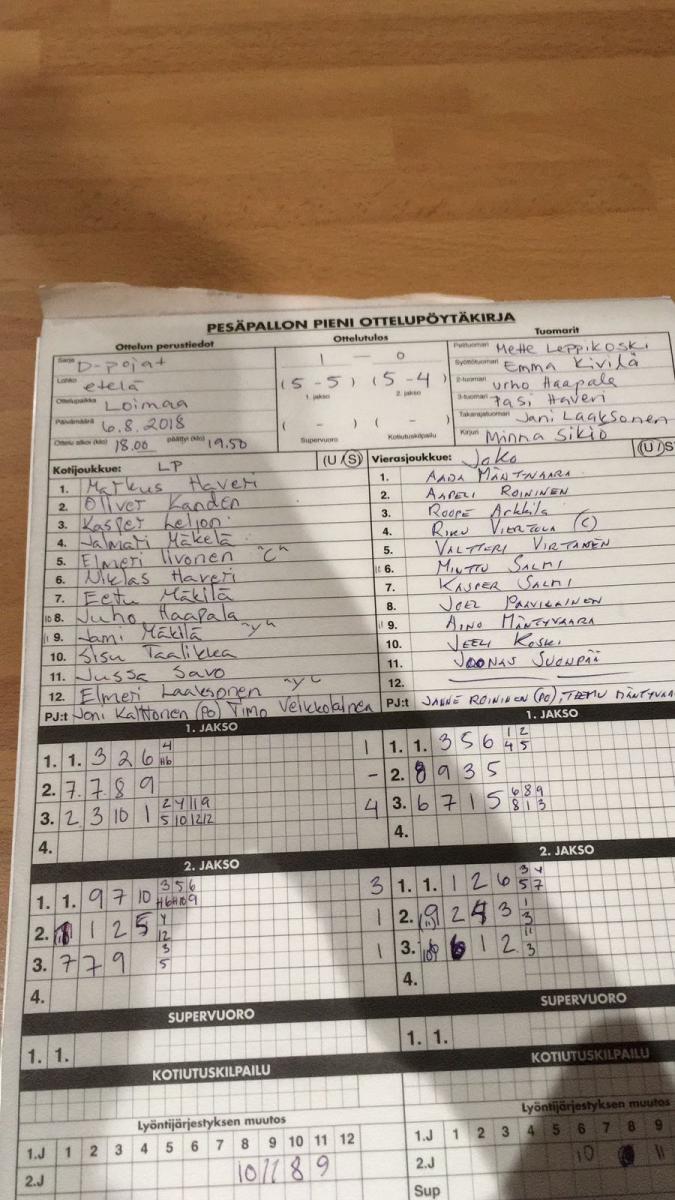 PESÄPALLON PIENI OTTELUPÖYTÄKIRJA
Ottelun perustiedot
Ottelutulos
Tuomarit
Sarja D-pojat
Lohko etelä
Ottelupaikka Loimaa
Päivämäärä 6.8.2018
Ottelu alkoi (klo) 18.00 päättyi (klo) 19.50
1 — 0
(5 - 5) (5 - 4)
1. jakso 2. jakso
( - ) ( - )
Supervuoro Kotiutuskilpailu
Pelituomari Mette Leppikoski
Syöttötuomari Emma Kivilä
2-tuomari Urho Haapala
3-tuomari Pasi Haveri
Takarajatuomari Jani Laaksonen
Kirjuri Minna Sikiö
Kotijoukkue: LP (U/S)
1. Markus Haveri
2. Oliver Kanden
3. Kasper
4. Jalmari Mäkelä
5. Elmeri Iivonen "C"
6. Niklas Haveri
7. Eetu Mäkilä
10 8. Juho Haapala
11 9. Jami Mäkilä "y"
10. Sisu Taalikka
11. Jussa Savo
12. Elmeri Laaksonen "y"
PJ:t Joni Kalttonen (PO) Timo Veikkolainen
Vierasjoukkue: Joko (U/S
1. AADA MÄNTYVAARA
2. AAPELI ROININEN
3. ROOPE Arkkila
4. RIKU VIERTOLA (C)
5. VALTTERI VIRTANEN
6. MINTTU SALMI
7. KASPER SALMI
8. JOEL PAAVILAINEN
9. AINO MÄNTYVAARA
10. JEELI KOSKI
11. JOONAS SUONPÄÄ
12.
PJ:t JANNE ROININEN (PO), TEEMU MÄNTYVAA
1. JAKSO
1. 1. 3 2 6 4 H6 1
2. 7. 7 8 9 -
3. 2 3 10 1 2 4 11 9 5 10 12 12 4
4.
2. JAKSO
1. 1. 9 7 10 3 5 6 H6 H10 9 3
2. 1 2 5 4 12 1
3. 7 7 9 3 5 1
4.
SUPERVUORO
1. 1.
KOTIUTUSKILPAILU
Lyöntijärjestyksen muutos
1.J 1 2 3 4 5 6 7 8 9 10 11 12
2.J 10 11 8 9
1. JAKSO
1. 1. 3 5 6 1 2 4 5
2. 8 9 3 5
3. 6 7 1 5 6 8 9 8 1 3
4.
2. JAKSO
1. 1. 1 2 6 3 4 5 7
2. 9 (11) 2 4 3 1 3
3. 6 1 2 11 3
4.
SUPERVUORO
1. 1.
KOTIUTUSKILPAILU
Lyöntijärjestyksen muutos
1.J 1 2 3 4 5 6 7 8 9
2.J 10 11
Sup